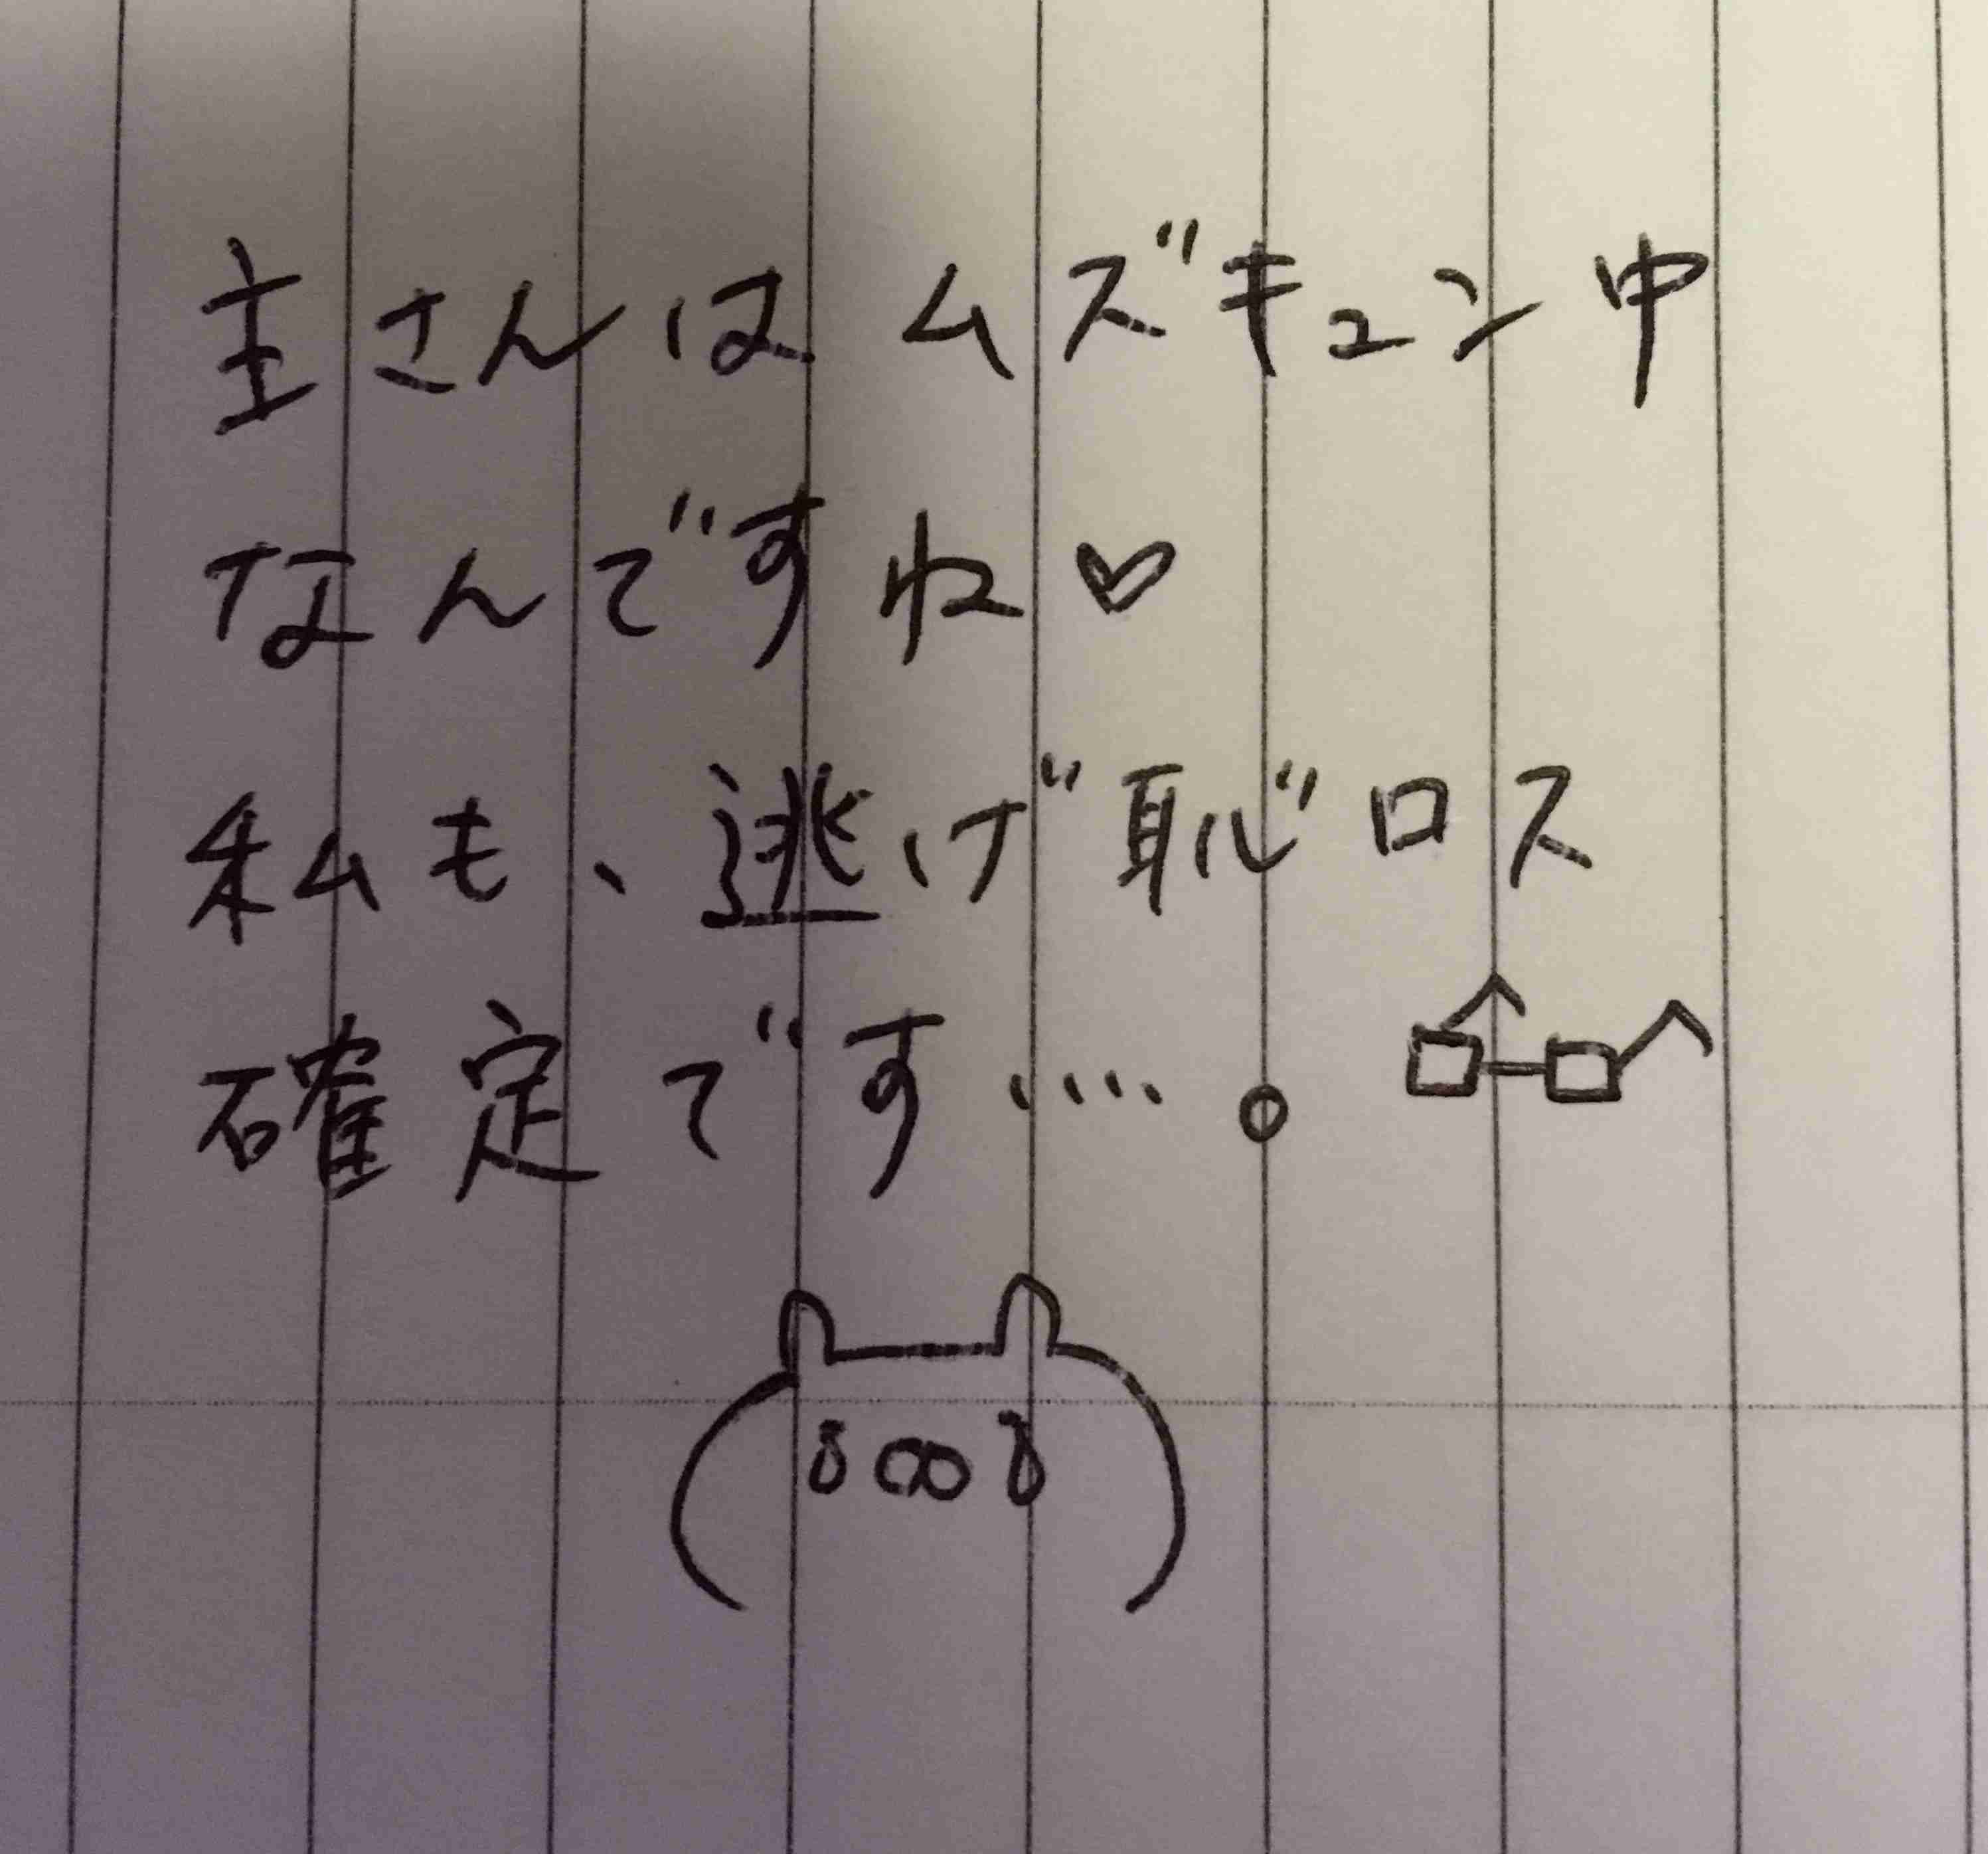 主さんはムズキュン中
なんですね♡
私も、逃げ恥ロス
確定です….。